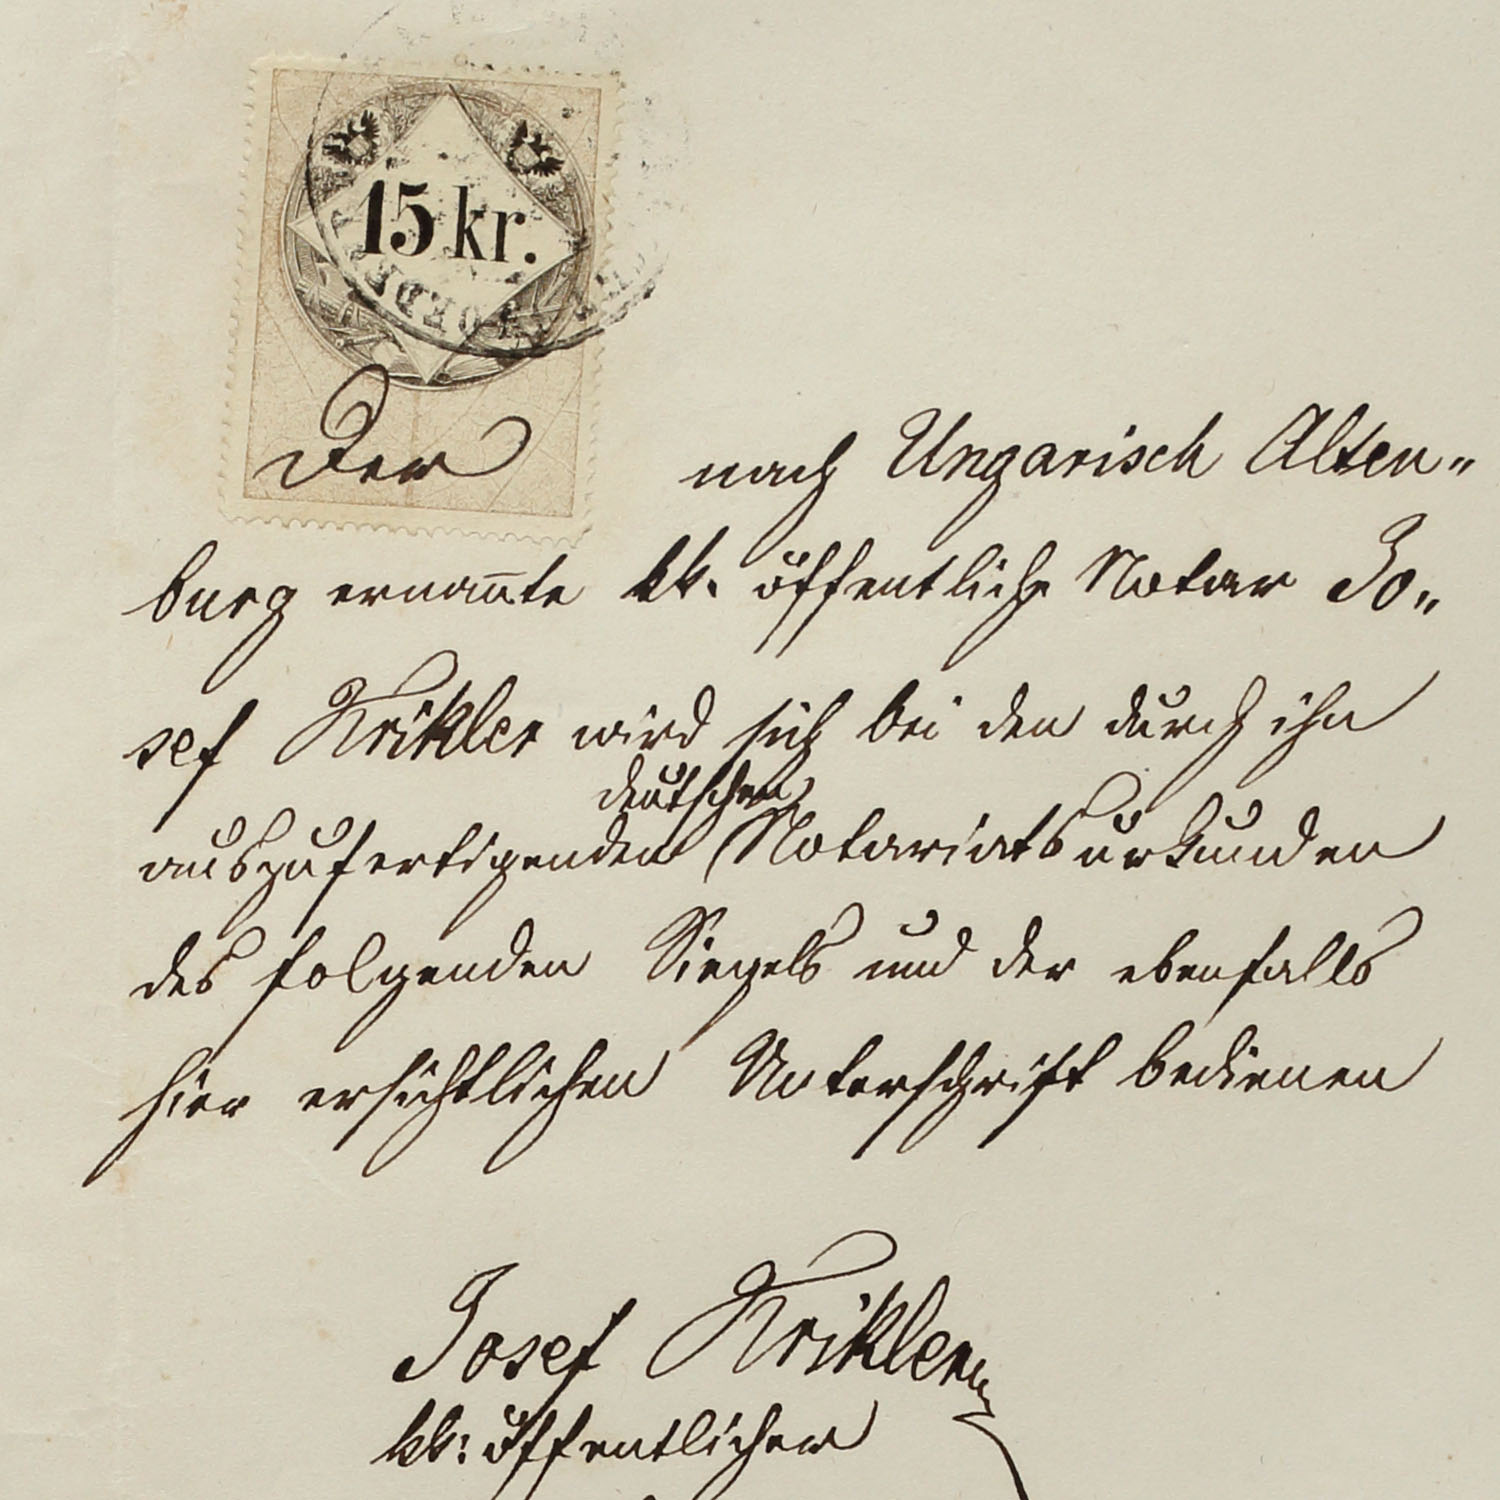 15 kr.
Der nach Ungarisch Alten„
burg ernan̅te kk. öffentliche Notar Jo„
sef Krikler wird sich bei den durch ihn
deutschen
auszufertigenden Notariatsurkunden
des folgenden Siegels und der ebenfalls
hier ersichtlichen Unterschrift bedienen
Josef Krikler
kk: öffentlicher